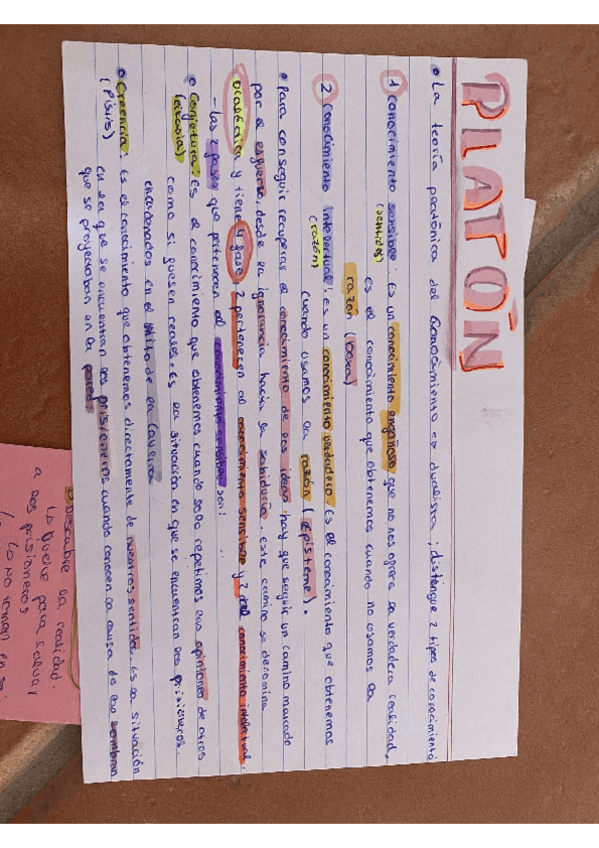 PLATÓN
• La teoría platónica del conocimiento es dualista; distingue 2 tipos de conocimiento
1 conocimiento sensible: Es un conocimiento engañoso que no nos ofrece la verdadera realidad,
(sentidos) es el conocimiento que obtenemos cuando no usamos la
razón (doxa)
2 conocimiento intelectual: Es un conocimiento verdadero. Es el conocimiento que obtenemos
(razón) cuando usamos la razón (episteme).
• Para conseguir recuperar el conocimiento de las ideas hay que seguir un camino marcado
por el esfuerzo, desde la ignorancia hacia la sabiduría, este camino se denomina
Dialéctica y tiene 4 fases, 2 pertenecen al conocimiento sensible y 2 al conocimiento intelectual.
- Las 2 fases que pertenecen al conocimiento sensible son:
• Conjetura: es el conocimiento que obtenemos cuando solo repetimos las opiniones de otros
(eikasia) como si fuesen reales. Es la situación en que se encuentran los prisioneros
encadenados en el Mito de la Caverna
• Creencia: Es el conocimiento que obtenemos directamente de nuestros sentidos. Es la situación
(Pistis) en la que se encuentran los prisioneros cuando conocen la causa de las sombras
que se proyectaban en la pared.
Descubre la realidad.
Lo vuelve para salvar
a los prisioneros
Lo no